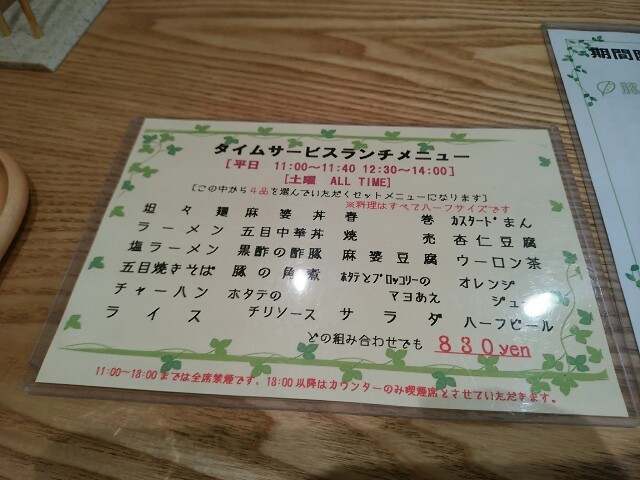 タイムサービスランチメニュー
[平日 11:00～11:40 12:30～14:00]
[土曜 ALL TIME]
[この中から4品を選んでいただくセットメニューになります]
※料理はすべてハーフサイズです
坦々麺 麻婆丼 春巻 カスタードまん
ラーメン 五目中華丼 焼売 杏仁豆腐
塩ラーメン 黒酢の酢豚 麻婆豆腐 ウーロン茶
五目焼きそば 豚の角煮 ホタテとブロッコリーの オレンジ
チャーハン ホタテの マヨあえ ジュース
ライス チリソース サラダ ハーフビール
どの組み合わせでも 830yen
11:00～18:00までは全席禁煙です。18:00以降はカウンターのみ喫煙席とさせていただきます。
期間